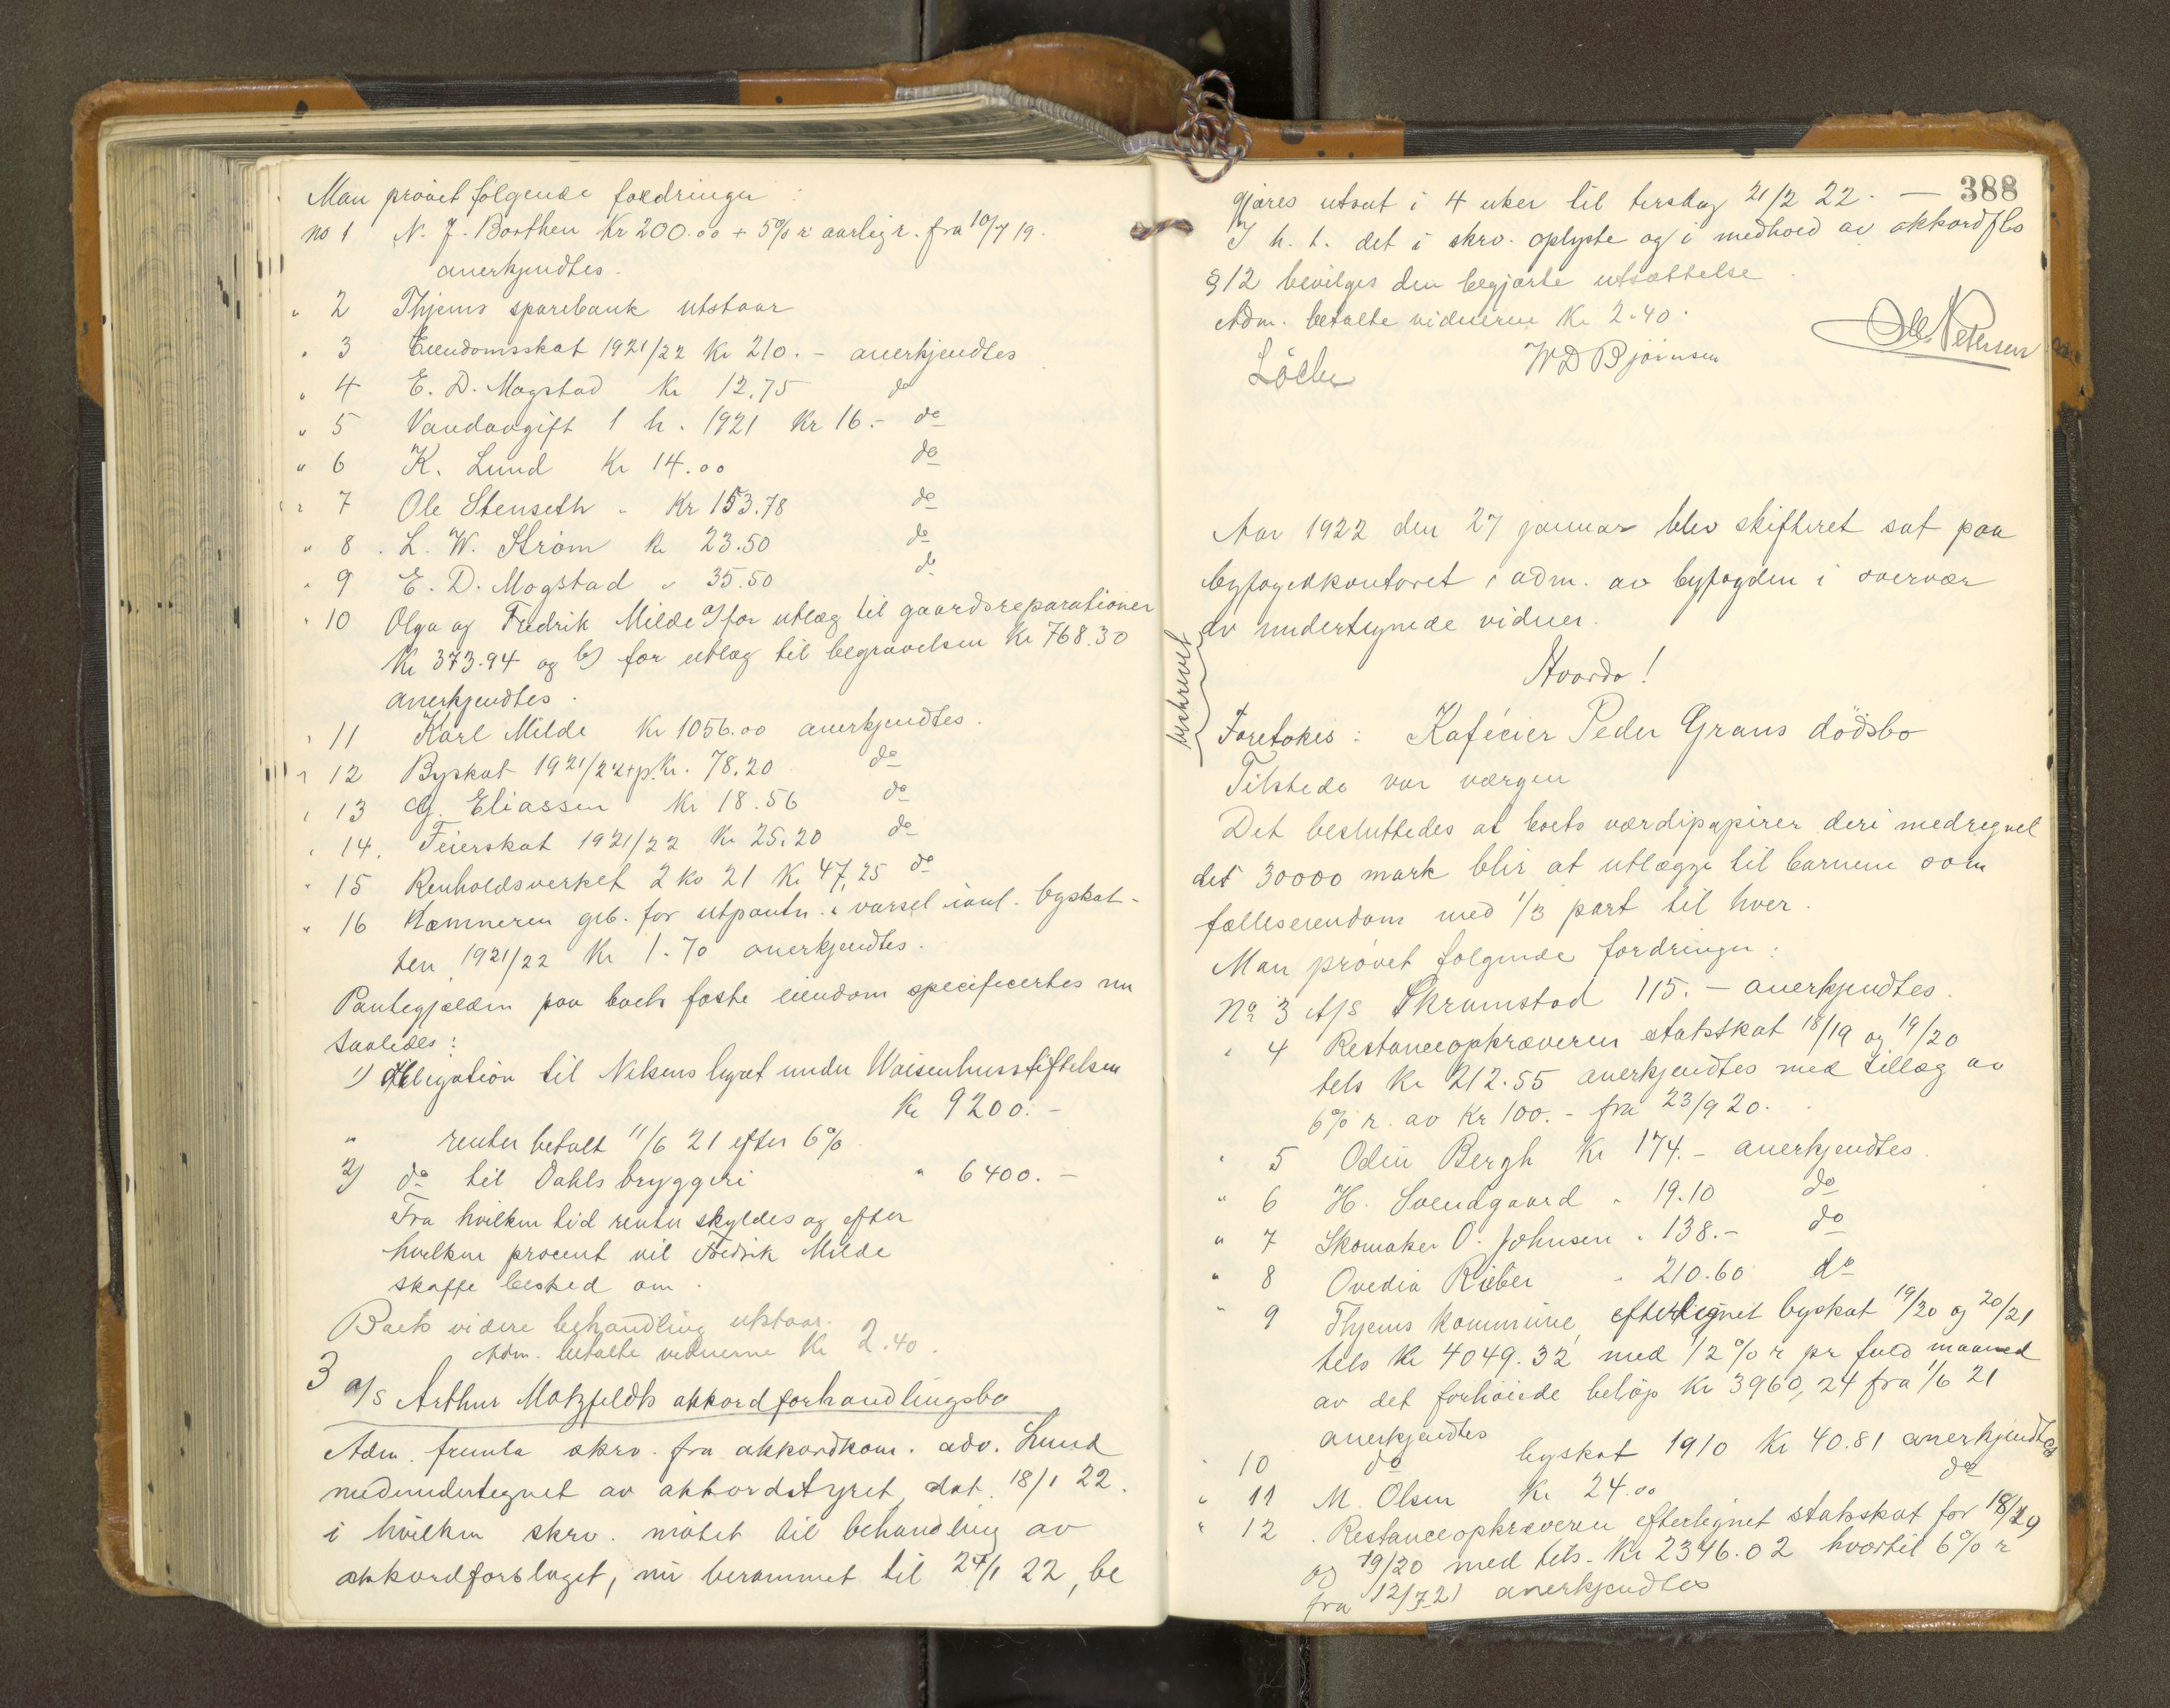 Man prøvet følgende fordringer :
no 1 N. J. Borthen Kr 200.00 + 5% r aarlig r. fra 10/7 19.
anerkjendtes.
" 2 Thjems sparebank utstaar
" 3 Eiendomsskat 1921/22 Kr 210.- anerkjendtes
" 4 E. D. Mogstad Kr 12,75 do
" 5 Vandavgift 1 h. 1921 Kr 16.- do
" 6 K. Lund Kr 14.00 do
" 7 Ole Stenseth " Kr 153.78 do
" 8 L. W. Strøm Kr 23.50 do
" 9 E. D. Mogstad " 35.50 do
" 10 Olga og Fredrik Milde a) for utlæg til gaardsreparationer
Kr 373.94 og b) for utlæg til begravelsen Kr 768.30
anerkjendtes.
" 11 Karl Milde Kr 1056.00 anerkjendtes.
" 12 Byskat 1921/22 Kr. 78,20 do
" 13 Eliassen Kr 18.56 do
" 14. Feierskat 1921/22 Kr 25,20 do
" 15 Renholdsverket 2 kv 21 Kr 47,25 do
" 16 Kæmneren geb. for utpantn. varsel byskat-
ten 1921/22 Kr 1.70 anerkjendtes.
Pantegjælden paa boets faste eiendom specificertes nu
saaledes :
1) Obligation til Nelsens legat under Waisenhusstiftelsen
Kr 9200.-
" renter betalt 11/6 21 efter 6%
2) do til Dahls bryggeri " 6400.-
Fra hvilken tid renter skyldes og efter
hvilken procent vil Fredrik Milde
skaffe besked om.
Boets videre behandling utstaar.
Adm. betalte vidnerne Kr 2.40.
3 a/s Arthur Motzfeldts akkordforhandlingsbo
Adm. fremla skrv. fra akkordkom. adv. Lund
medundertegnet av akkordstyret, dat. 18/1 22.
i hvilken skrv. møtet til behandling av
akkordforslaget, nu berammet til 24/1 22, be
388
gjæres utsat i 4 uker til tirsdag 21/2 22. —
I h. t. det i skrv. oplyste og i medhold av akkordslo
§ 12 bevilges den begjærte utsættelse
Adm. betalte vidnerne Kr 2.40.
Ole Petersen
W D Bjørnsen
Löchen
Aar 1922 den 27 januar blev skifteret sat paa
byfogedkontoret adm. av byfogden i overvær
av undertegnede vidner.
Hvorda !
beskrevet
Foretokes : Kafécier Peder Grans dödsbo
Tilstede var værgen
Det besluttedes at boets værdipapirer deri medregnet
det 30000 mark blir at utlægge til barnene som
fælleseiendom med 1/3 part til hver.
Man prøvet følgende fordringer :
No 3 A/S Skrumstad 115.- anerkjendtes.
" 4 Restanceopkræveren statsskat 18/19 og 19/20
tels Kr 212.55 anerkjendtes med tillæg av
6% r. av Kr 100.- fra 23/9 20.
" 5 Odin Bergh Kr 174.- anerkjendtes.
" 6 H. Svendgaard " 19.10 do
" 7 Skomaker O. Johnsen " 138.- do
" 8 Ovedia Rieber " 210.60 do
" 9 Thjems kommune, efterlignet byskat 19/20 og 20/21
tels Kr 4049.32 med 1/2% r pr fuld maaned
av det forhøiede beløp Kr 3960,24 fra 1/6 21
anerkjendtes
" 10 do byskat 1910 Kr 40.81 anerkjendtes
" 11 M. Olsen Kr 24.00 do
" 12 Restanceopkræveren efterlignet statsskat for 18/19
og 19/20 med tels. Kr 2346.02 hvortil 6% r
fra 12/7 21 anerkjendtes